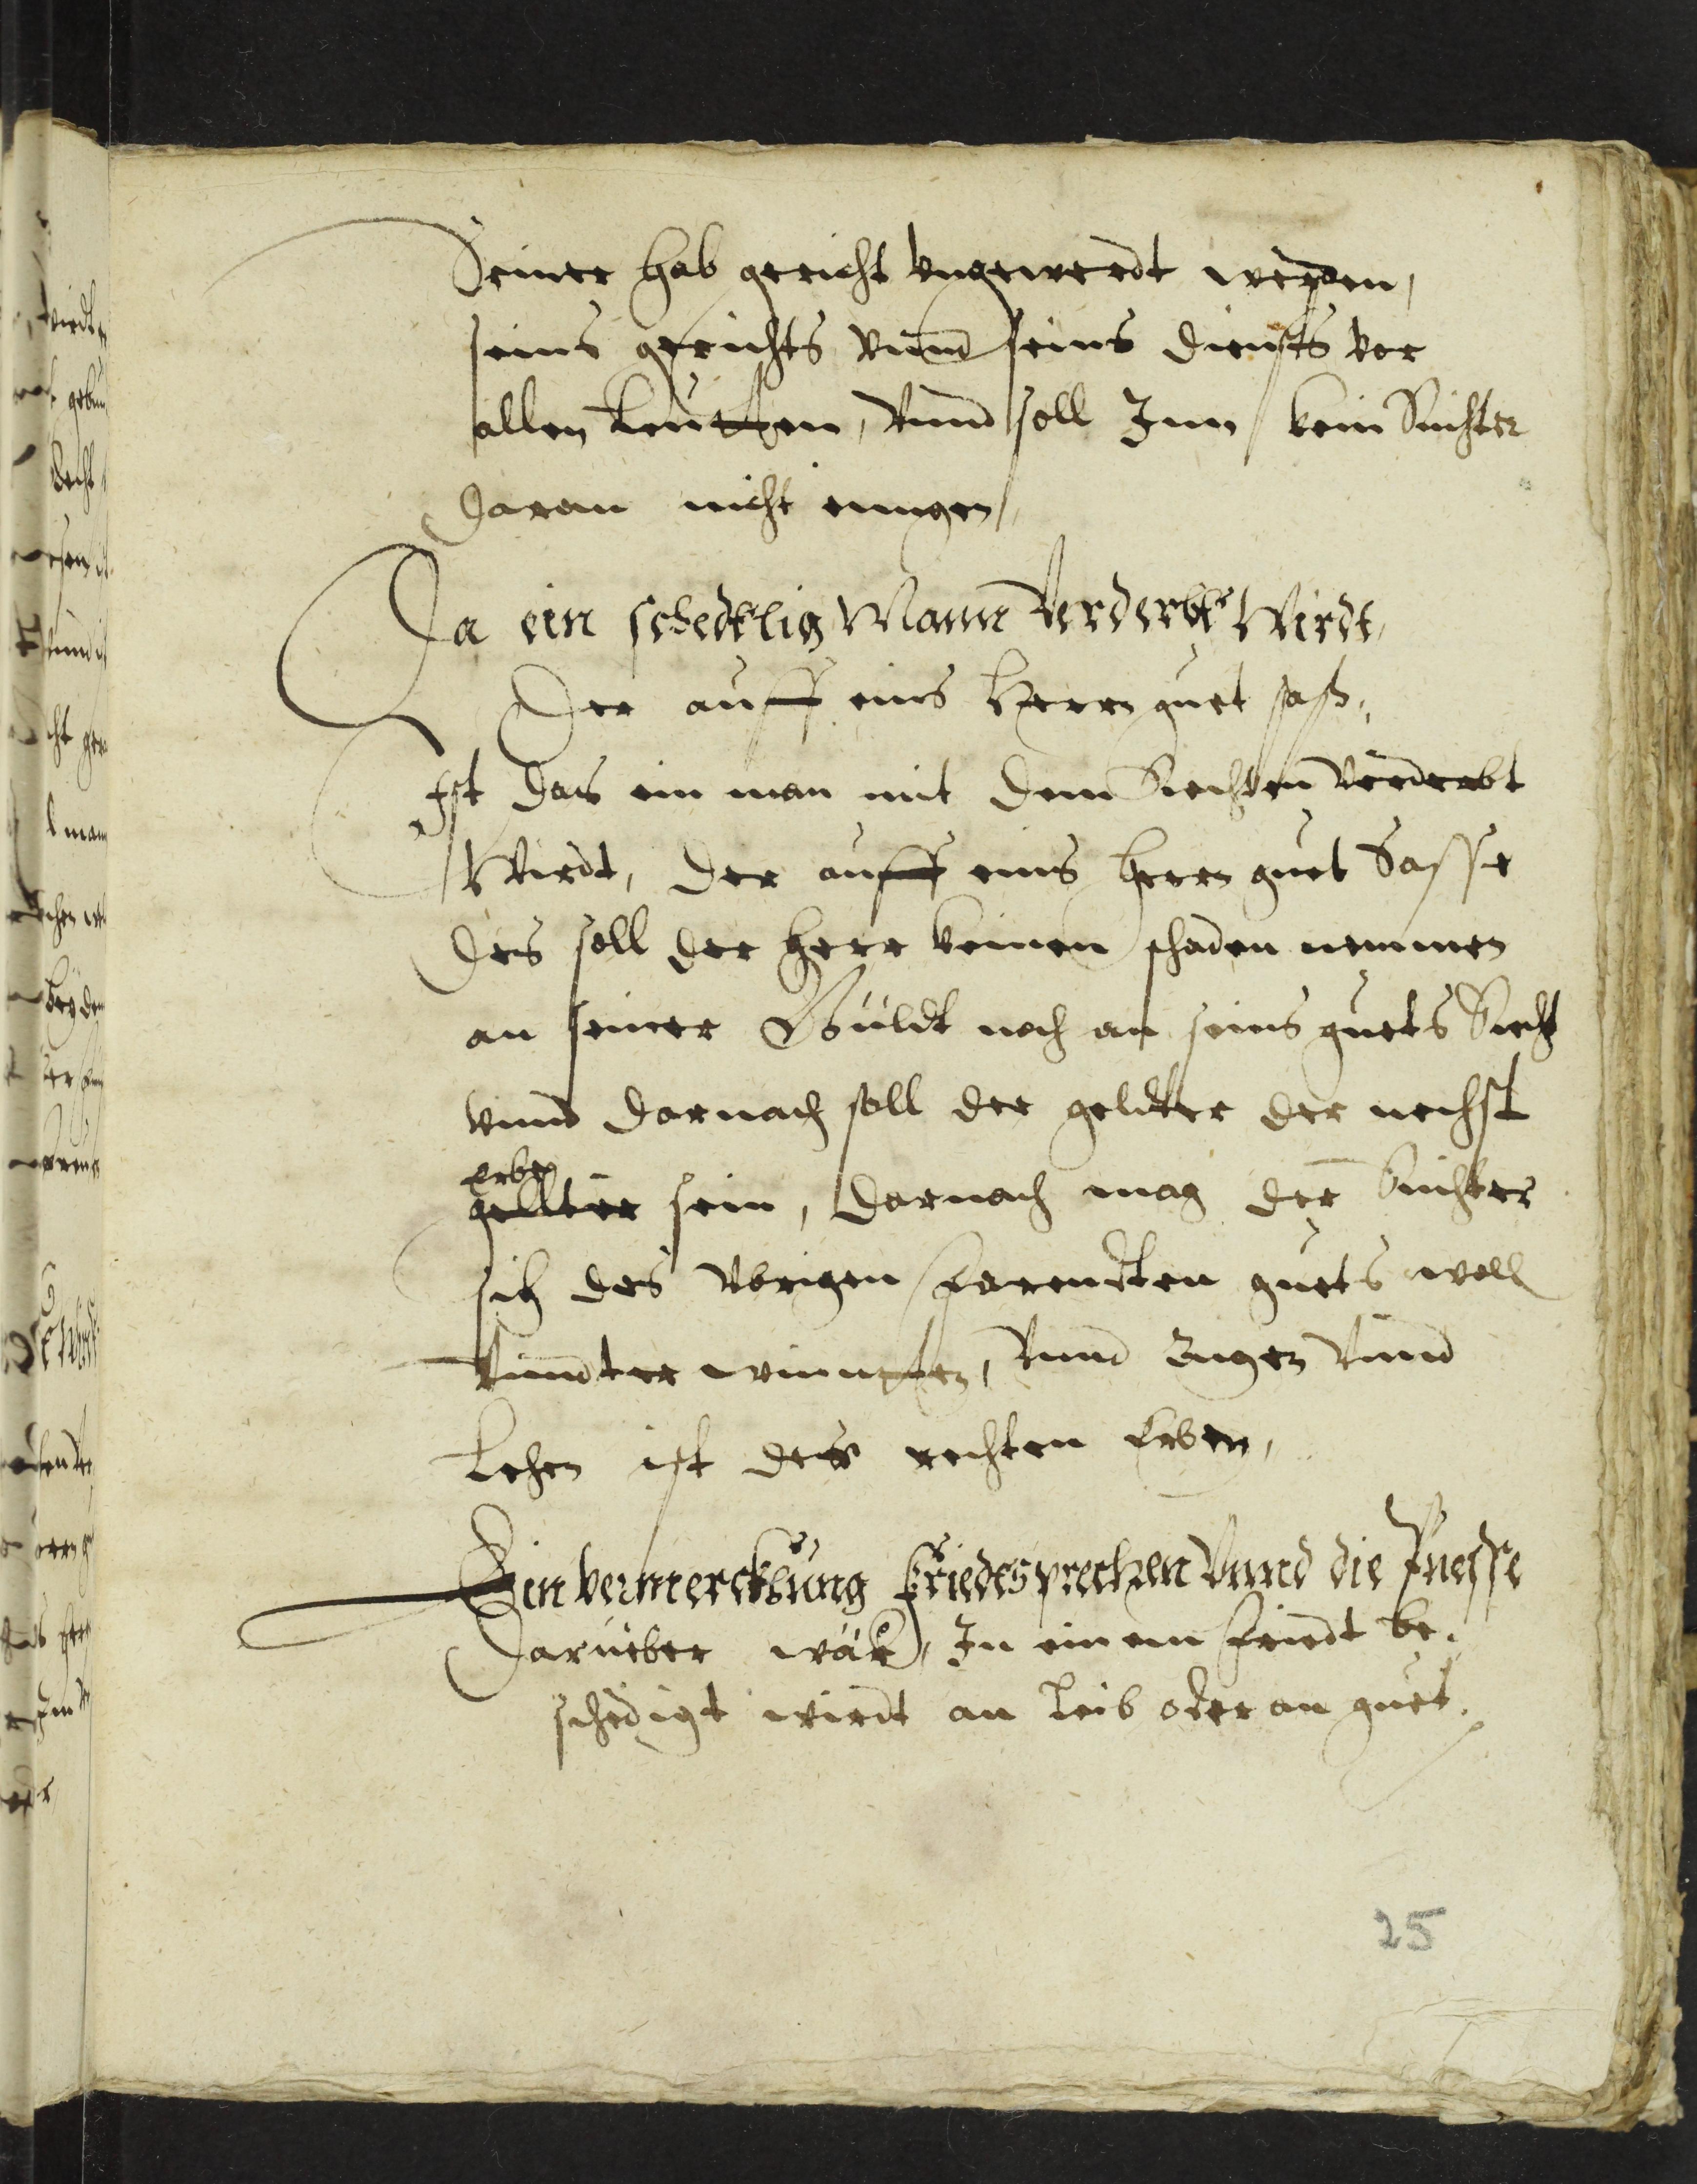 Seiner hab gericht vngewerdt werden,
seins gerichts vnnd seins diensts vor
allen Leutten, Vnnd soll Inn kein Richter
daran nicht ennngen,
Da ein schedtlig Mann Verderbt Wirdt,
Der auff eins Herrn guet saß,
Ist das ein man mit dem Rechten verderbt
Wirdt, der auff eins herrn guet Sasse
des soll der herr keinen schaden nemmen
an seiner Güldt noch an seins guets Recht
vnnd darnach soll der geldter der nechst
erb
gellter sein, darnach mag der Richter
sich des Vbrigen farendten guets woll
Vnndter winndten, Vnnd Eigen Vnnd
Lehen ist der rechten Erben,
Ein vermerckhung Friedsprechen Vnnd die Puesse
Darüeber wär, In einem friedt be-
schedigt wirdt an leib oder an guet.
25